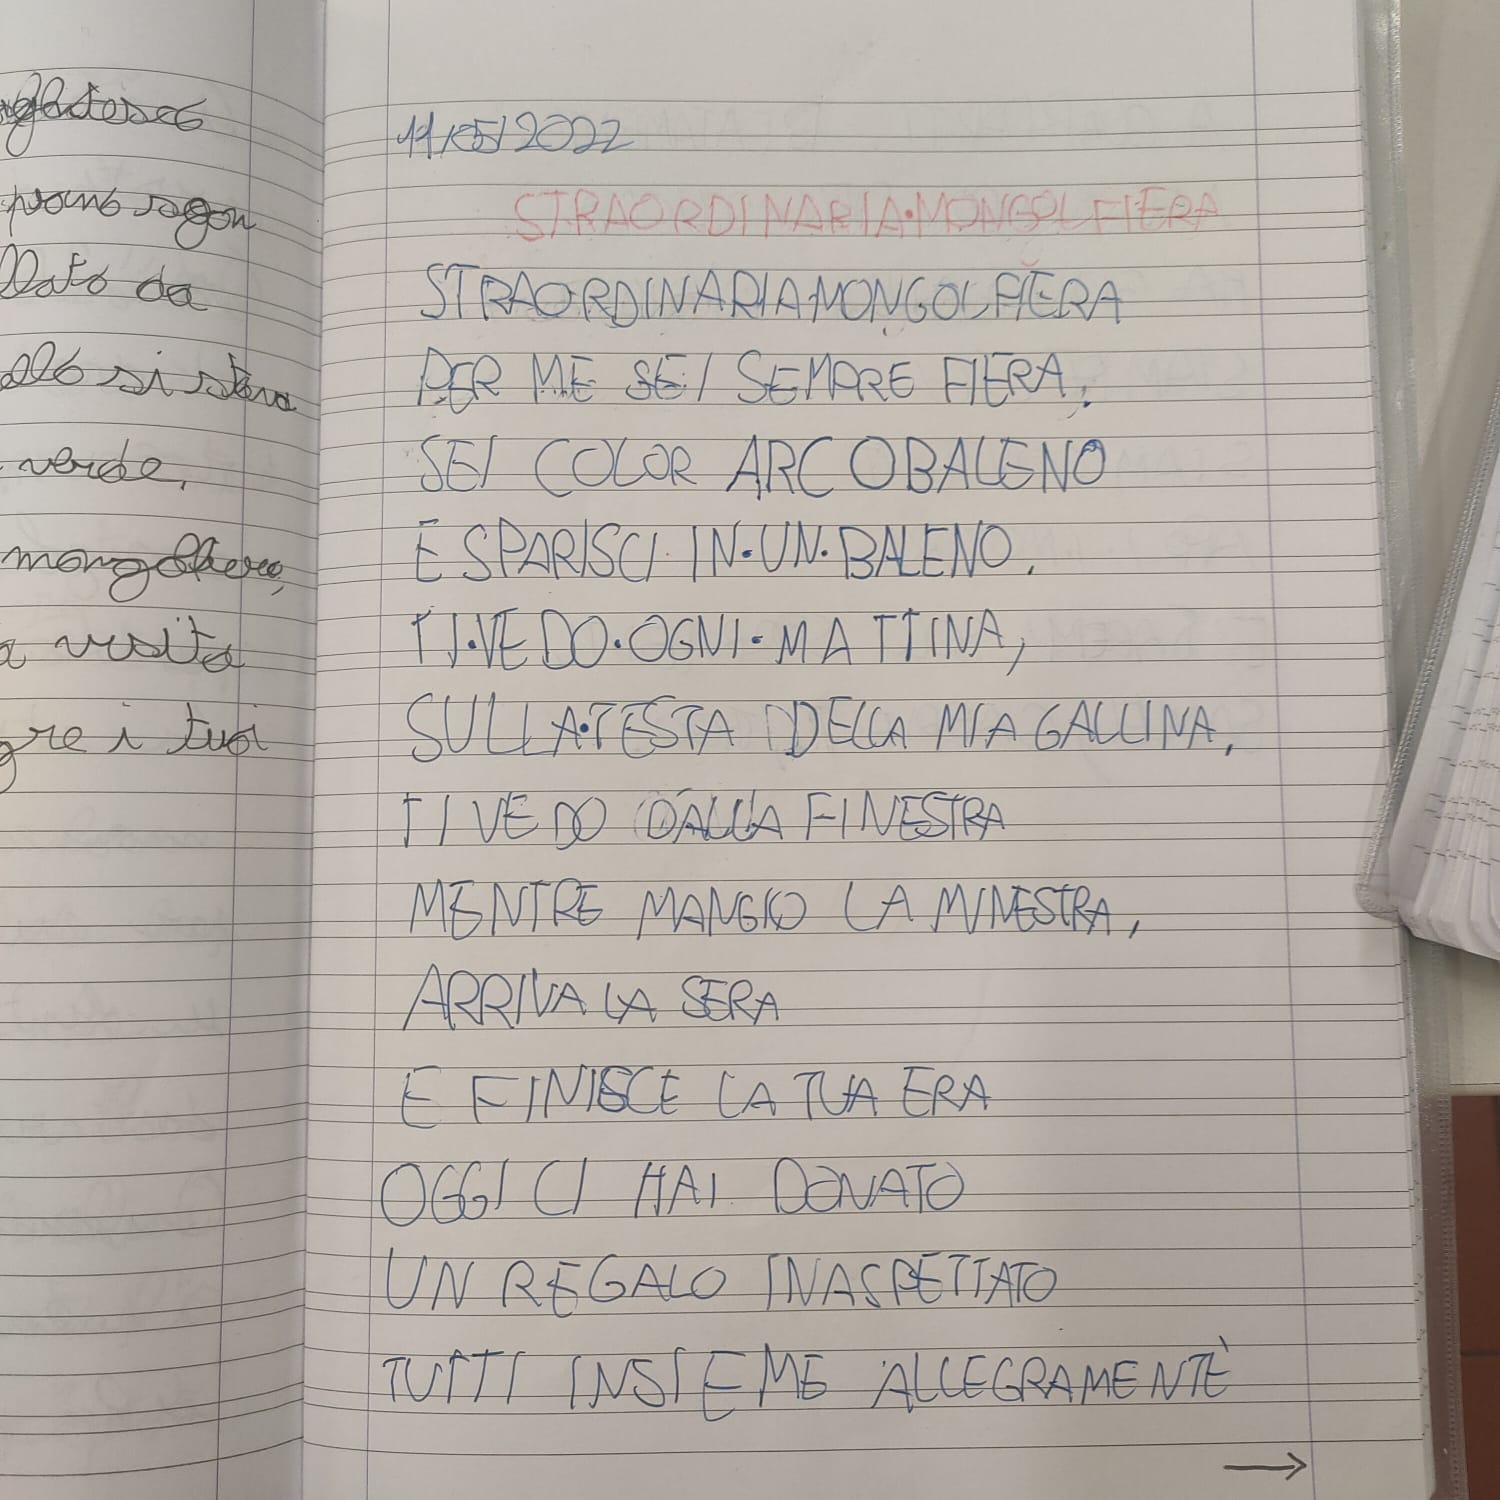 verde,
a visita
gre i tuoi
11/05/2022
STRAORDINARIA•MONGOLFIERA
STRAORDINARIA•MONGOLFIERA
PER ME SEI SEMPRE FIERA,
SEI COLOR ARCOBALENO
E SPARISCI IN•UN•BALENO,
TI•VEDO•OGNI•MATTINA,
SULLA•TESTA DELLA MIA GALLINA,
TI VEDO DALLA FINESTRA
MENTRE MANGIO LA MINESTRA,
ARRIVA LA SERA
E FINISCE LA TUA ERA
OGGI CI HAI DONATO
UN REGALO INASPETTATO
TUTTI INSIEME ALLEGRAMENTE